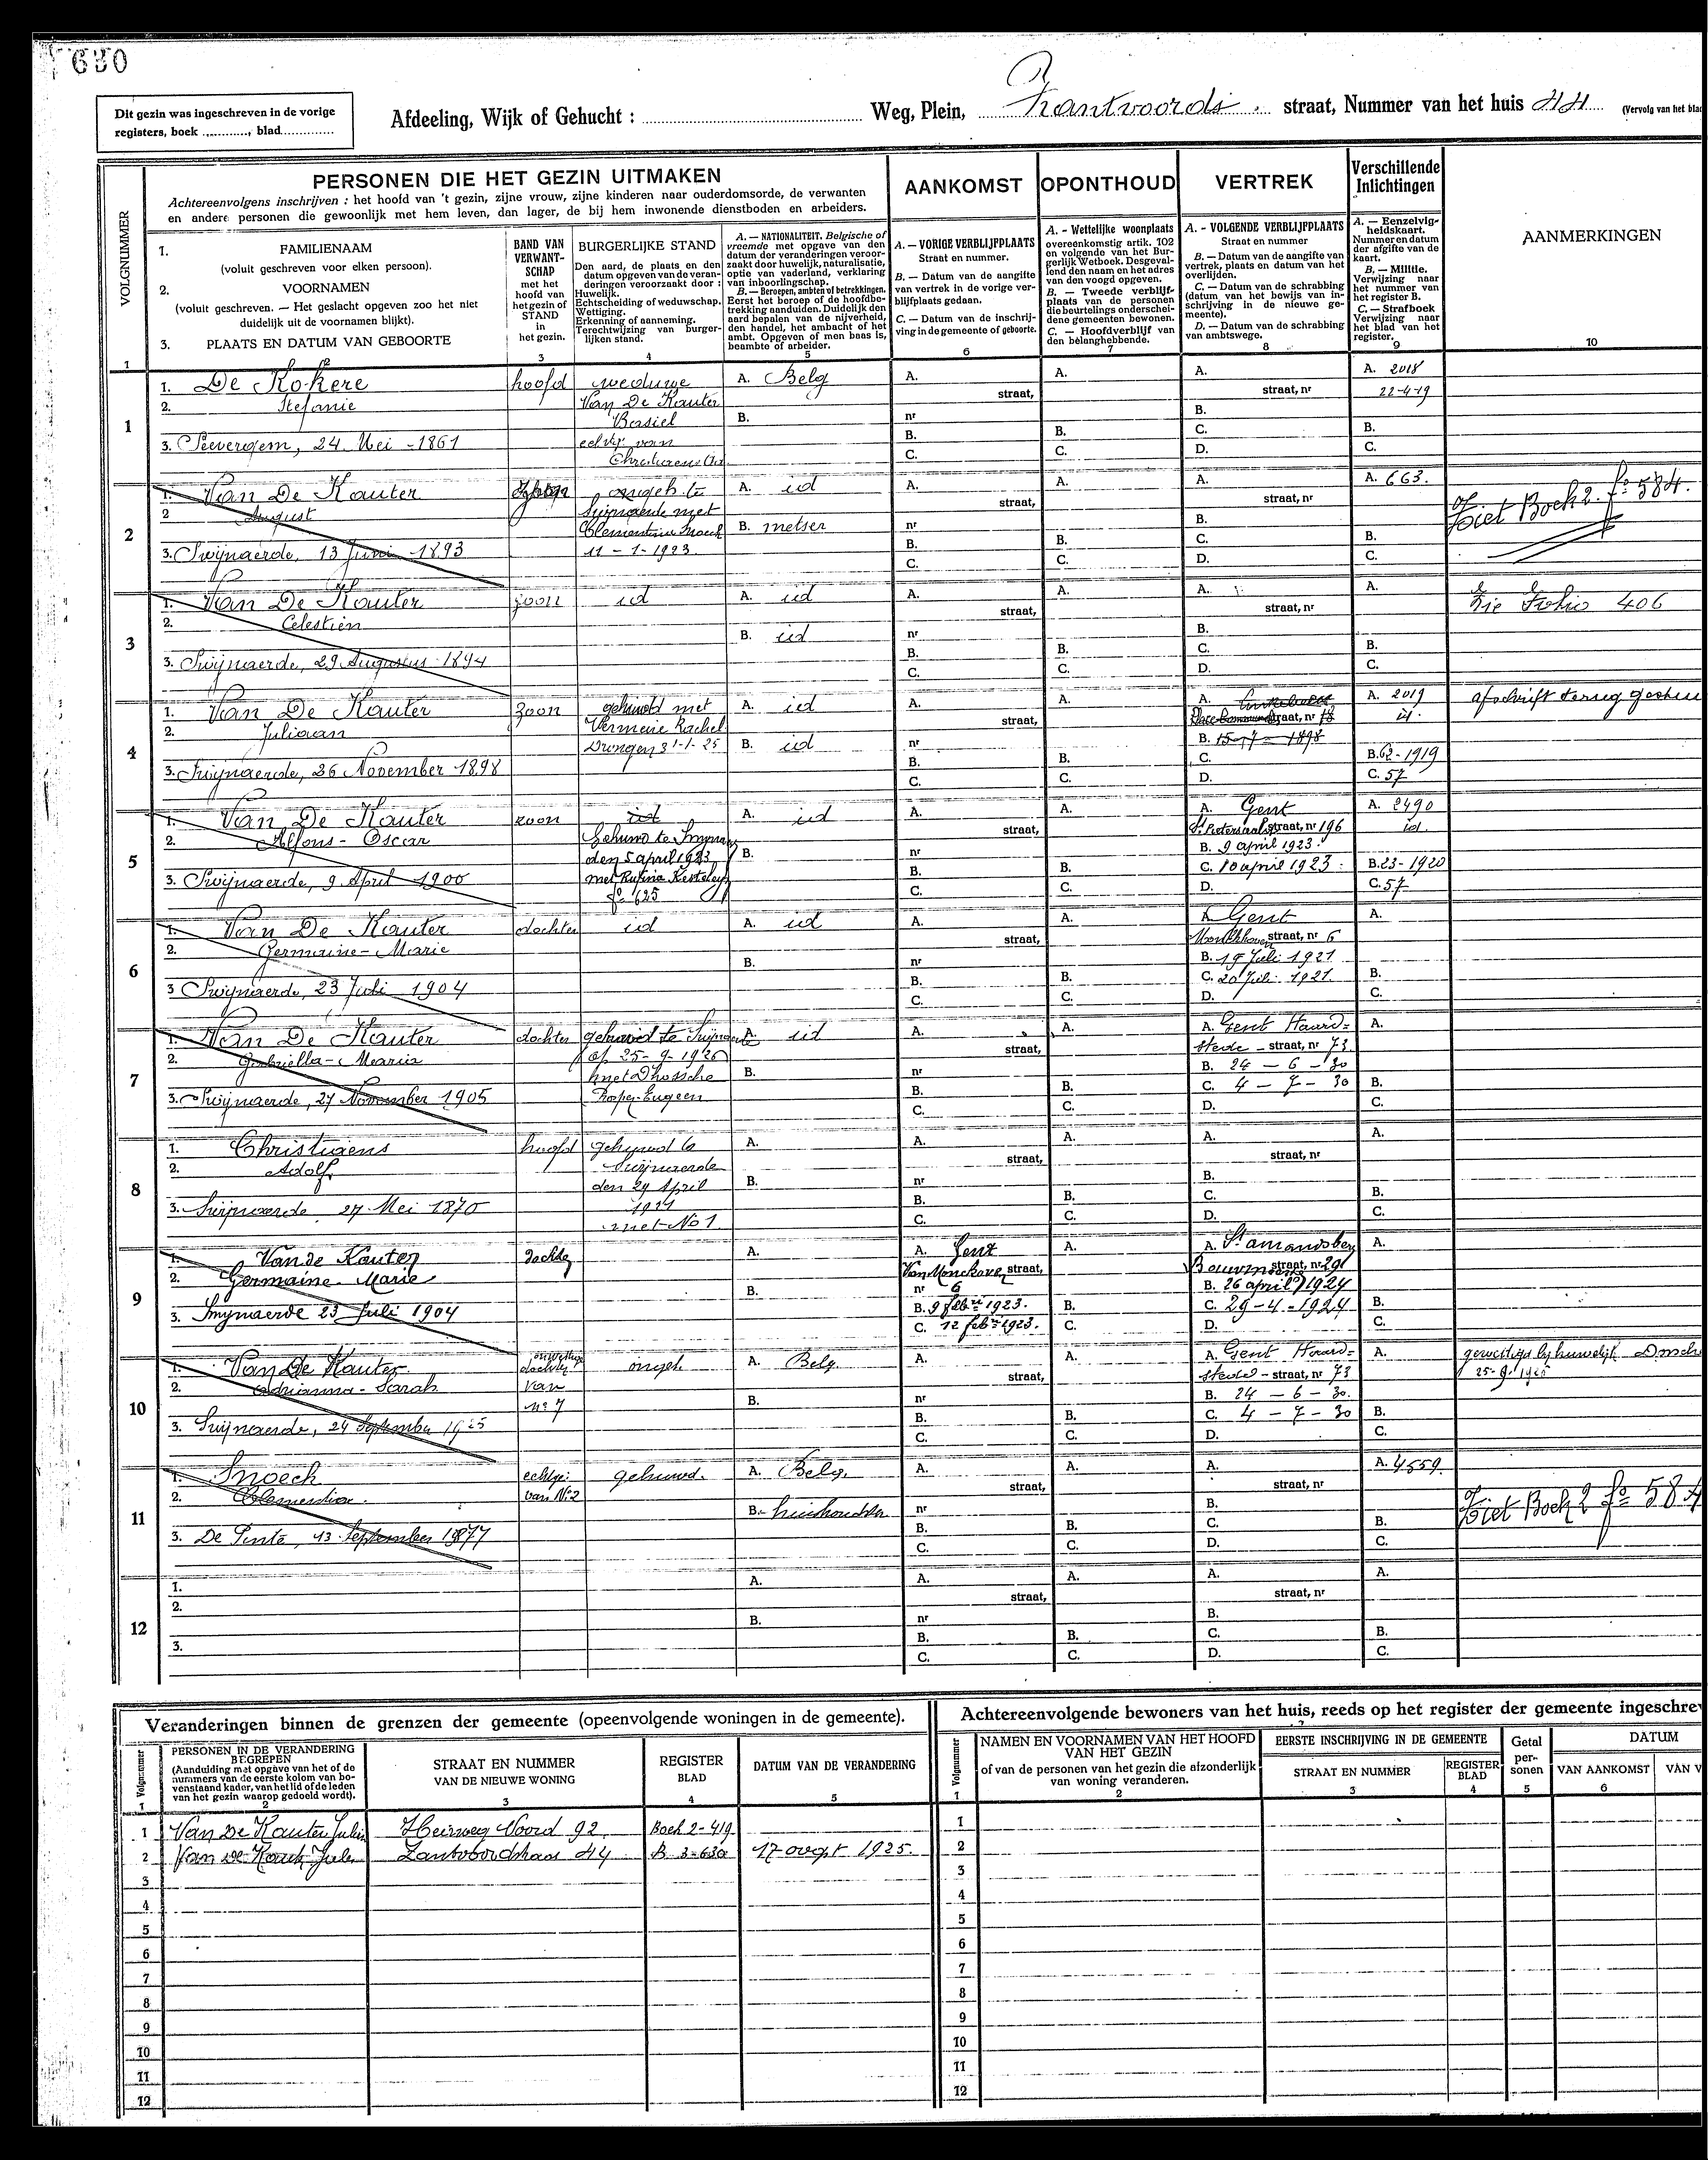 630
Dit gezin was ingeschreven in de vorige
registers, boek ..........., blad..............
Afdeeling, Wijk of Gehucht :
Weg, Plein, Zantvoords straat, Nummer van het huis 44 (Vervolg van het bla
PERSONEN DIE HET GEZIN UITMAKEN
Achtereenvolgens inschrijven : het hoofd van 't gezin, zijne vrouw, zijne kinderen naar ouderdomsorde, de verwanten
en andere personen die gewoonlijk met hem leven, dan lager, de bij hem inwonende dienstboden en arbeiders.
AANKOMST
OPONTHOUD
VERTREK
Verschillende
Inlichtingen
AANMERKINGEN
VOLGNUMMER
1. FAMILIENAAM
(voluit geschreven voor elken persoon).
2. VOORNAMEN
(voluit geschreven. — Het geslacht opgeven zoo het niet
duidelijk uit de voornamen blijkt).
3. PLAATS EN DATUM VAN GEBOORTE
BAND VAN
VERWANT-
SCHAP
met het
hoofd van
het gezin of
STAND
in
het gezin.
BURGERLIJKE STAND
Den aard, de plaats en den
datum opgeven van de veran-
deringen veroorzaakt door :
Huwelijk.
Echtscheiding of weduwschap.
Wettiging.
Erkenning of aanneming.
Terechtwijzing van burger-
lijken stand.
A. — NATIONALITEIT. Belgische of
vreemde met opgave van den
datum der veranderingen veroor-
zaakt door huwelijk, naturalisatie,
optie van vaderland, verklaring
van inboorlingschap.
B. — Beroepen, ambten of betrekkingen.
Eerst het beroep of de hoofdbe-
trekking aanduiden. Duidelijk den
aard bepalen van de nijverheid,
den handel, het ambacht of het
ambt. Opgeven of men baas is,
beambte of arbeider.
A. — VORIGE VERBLIJFPLAATS
Straat en nummer.
B. — Datum van de aangifte
van vertrek in de vorige ver-
blijfplaats gedaan.
C. — Datum van de inschrij-
ving in de gemeente of geboorte.
A. - Wettelijke woonplaats
overeenkomstig artik. 102
en volgende van het Bur-
gerlijk Wetboek. Desgeval-
lend den naam en het adres
van den voogd opgeven.
B. — Tweede verblijf-
plaats van de personen
die beurtelings onderschei-
dene gemeenten bewonen.
C. — Hoofdverblijf van
den belanghebbende.
A. - VOLGENDE VERBLIJFPLAATS
Straat en nummer
B. — Datum van de aangifte van
vertrek, plaats en datum van het
overlijden.
C. — Datum van de schrabbing
(datum van het bewijs van in-
schrijving in de nieuwe ge-
meente).
D. — Datum van de schrabbing
van ambtswege.
A. — Eenzelvig-
heidskaart.
Nummer en datum
der afgifte van de
kaart.
B. — Militie.
Verwijzing naar
het nummer van
het register B.
C. — Strafboek
Verwijzing naar
het blad van het
register.
1 3 4 5 6 7 8 9 10
1
1. De Kokere hoofd weduwe A. Belg A. A. A. A. 2018
2. Stefanie Van De Kauter straat, straat, nr 22-4-19
Basiel B. nr B.
3. Seevergem, 24 Mei - 1861 echtg. van B. B. C. B.
C. C. D. C.
2
1. Van De Kauter ongeh. te A. id A. A. A. A. 663.
2 August Swijnaerde met straat, straat, nr Ziet Boek 2. fo 584.
Clementine Snoeck B. metser nr B.
3. Swijnaerde, 13 Juni 1893 11 - 1 - 1923 B. B. C. B.
C. C. D. C.
3
1. Van De Kauter zoon id A. id A. A. A. A. Zie Folio 406
2. Celestien straat, straat, nr
B. id nr B.
3. Swijnaerde, 29 Augustus 1894 B. B. C. B.
C. C. D. C.
4
1. Van De Kauter zoon gehuwd met A. id A. A. A. A. 2019 afschrift terug
2. Juliaan Vermeire Rachel straat, straat, nr 78 id.
Drongen 31-1-25 B. id nr B. 15-7-1898
3. Swijnaerde, 26 November 1898 B. B. C. B. 62-1919
C. C. D. C. 57
5
1. Van De Kauter zoon id A. id A. A. A. Gent A. 2490
2. Alfons - Oscar Gehuwd te straat, St Pietersaalst straat, nr 196 id.
den 5 april 1923 B. nr B. 9 april 1923.
3. Swijnaerde, 9 April 1900 met Rufina B. B. C. 10 april 1923. B. 23-1920
fo 625 C. C. D. C. 57
6
1. Van De Kauter dochter id A. id A. A. A. Gent A.
2. Germaine - Marie straat, straat, nr 6
B. nr B. 19 Juli 1921
3 Swijnaerde, 23 Juli 1904 B. B. C. 20 Juli 1921. B.
C. C. D. C.
7
1. Van De Kauter dochter gehuwd te A. id A. A. A. Gent Haard= A.
2. Gabriella - Maria straat, stede - straat, nr 73
met Dhossche B. nr B. 24 - 6 - 30
3. Swijnaerde, 27 November 1905 Eugeen B. B. C. 4 - 7 - 30 B.
C. C. D. C.
8
1. Christiaens hoofd gehuwd te A. A. A. A. A.
2. Adolf Swijnaerde straat, straat, nr
den 29 April B. nr B.
3. Swijnaerde 27 Mei 1870 B. B. C. B.
met No 1 C. C. D. C.
9
1. Van de Kauter dochter A. A. Gent A. A. St amandsberg A.
2. Germaine - Marie Van Monckhoven straat, straat, nr 29
B. nr 6 B. 26 april 1924
3. Swijnaerde 23 Juli 1904 B. 9 feb 1923. B. C. 29-4-1924 B.
C. 12 feb 1923. C. D. C.
10
1. Van De Kauter dochter ongeh. A. Belg. A. A. A. Gent Haard= A. gewettigd bij huwelijk
2. Adrianna - Sarah van straat, stede - straat, nr 73 25-9-1926
no 7 B. nr B. 24 - 6 - 30.
3. Swijnaerde, 24 September 1925 B. B. C. 4 - 7 - 30 B.
C. C. D. C.
11
1. Snoeck echtge: gehuwd. A. Belg. A. A. A. A. 4559.
2. Clementine. van No 2 straat, straat, nr Ziet Boek 2 fo 584
B. nr B.
3. De Pinte, 13 September B. B. C. B.
C. C. D. C.
12
1. A. A. A. A. A.
2. straat, straat, nr
B. nr B.
3. B. B. C. B.
C. C. D. C.
Veranderingen binnen de grenzen der gemeente (opeenvolgende woningen in de gemeente).
Volgnummer
PERSONEN IN DE VERANDERING
BEGREPEN
(Aanduiding met opgave van het of de
nummers van de eerste kolom van bo-
venstaand kader, van het lid of de leden
van het gezin waarop gedoeld wordt).
STRAAT EN NUMMER
VAN DE NIEUWE WONING
REGISTER
BLAD
DATUM VAN DE VERANDERING
1 2 3 4 5
1 Van De Kauter Heirweg Noord 92 Boek 2-419
2 Van De Zantvoordstraat 44 B 3-630 17 oogst 1925.
3
4
5
6
7
8
9
10
11
12
Achtereenvolgende bewoners van het huis, reeds op het register der gemeente ingeschre
Volgnummer
NAMEN EN VOORNAMEN VAN HET HOOFD
VAN HET GEZIN
of van de personen van het gezin die afzonderlijk
van woning veranderen.
EERSTE INSCHRIJVING IN DE GEMEENTE
STRAAT EN NUMMER
REGISTER
BLAD
Getal
per-
sonen
DATUM
VAN AANKOMST
VAN V
1 2 3 4 5 6
1
2
3
4
5
6
7
8
9
10
11
12